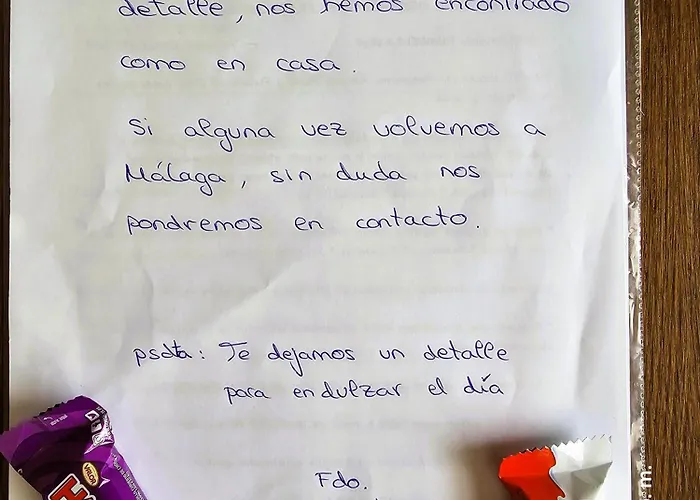 detalle, nos hemos encontrado
como en casa.
Si alguna vez volvemos a
Málaga, sin duda nos
pondremos en contacto.
psdta: Te dejamos un detalle
para endulzar el día
VALOR
Fdo.